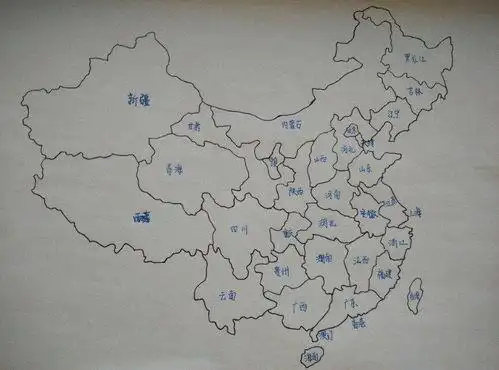 黑龙江
吉林
辽宁
新疆
甘肃
内蒙古
北京
天津
河北
山西
山东
青海
宁
陕西
河南
江苏
上海
安徽
西藏
四川
重庆
湖北
浙江
湖南
江西
贵州
福建
云南
广西
广东
香港
澳门
台湾
海南